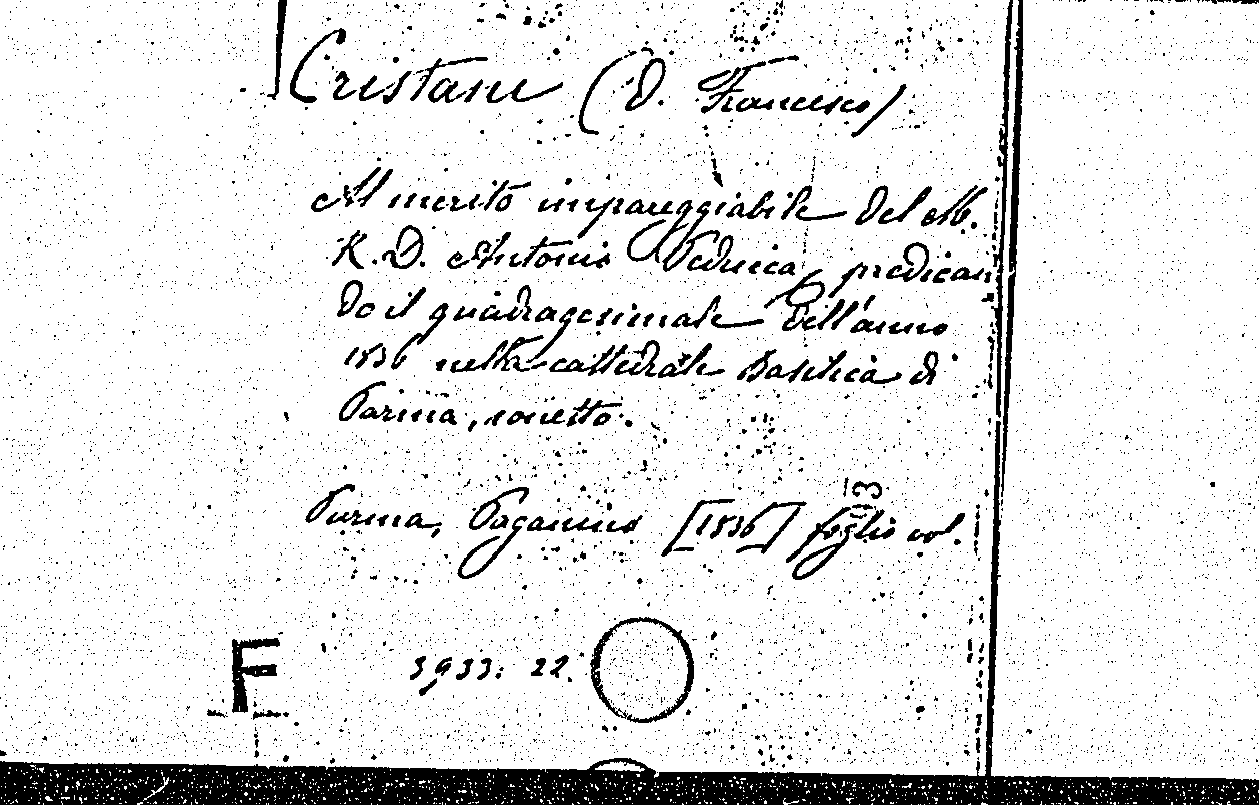 Cristani (D. Francesco)
Al merito impareggiabile del M.
R. D. Antonio Peducca, predican
do il quadragesimale dell'anno
1836 nella cattedrale Basilica di
Parma, sonetto.
13
Parma, Paganino [1836] foglio vol.
F
3933: 22.